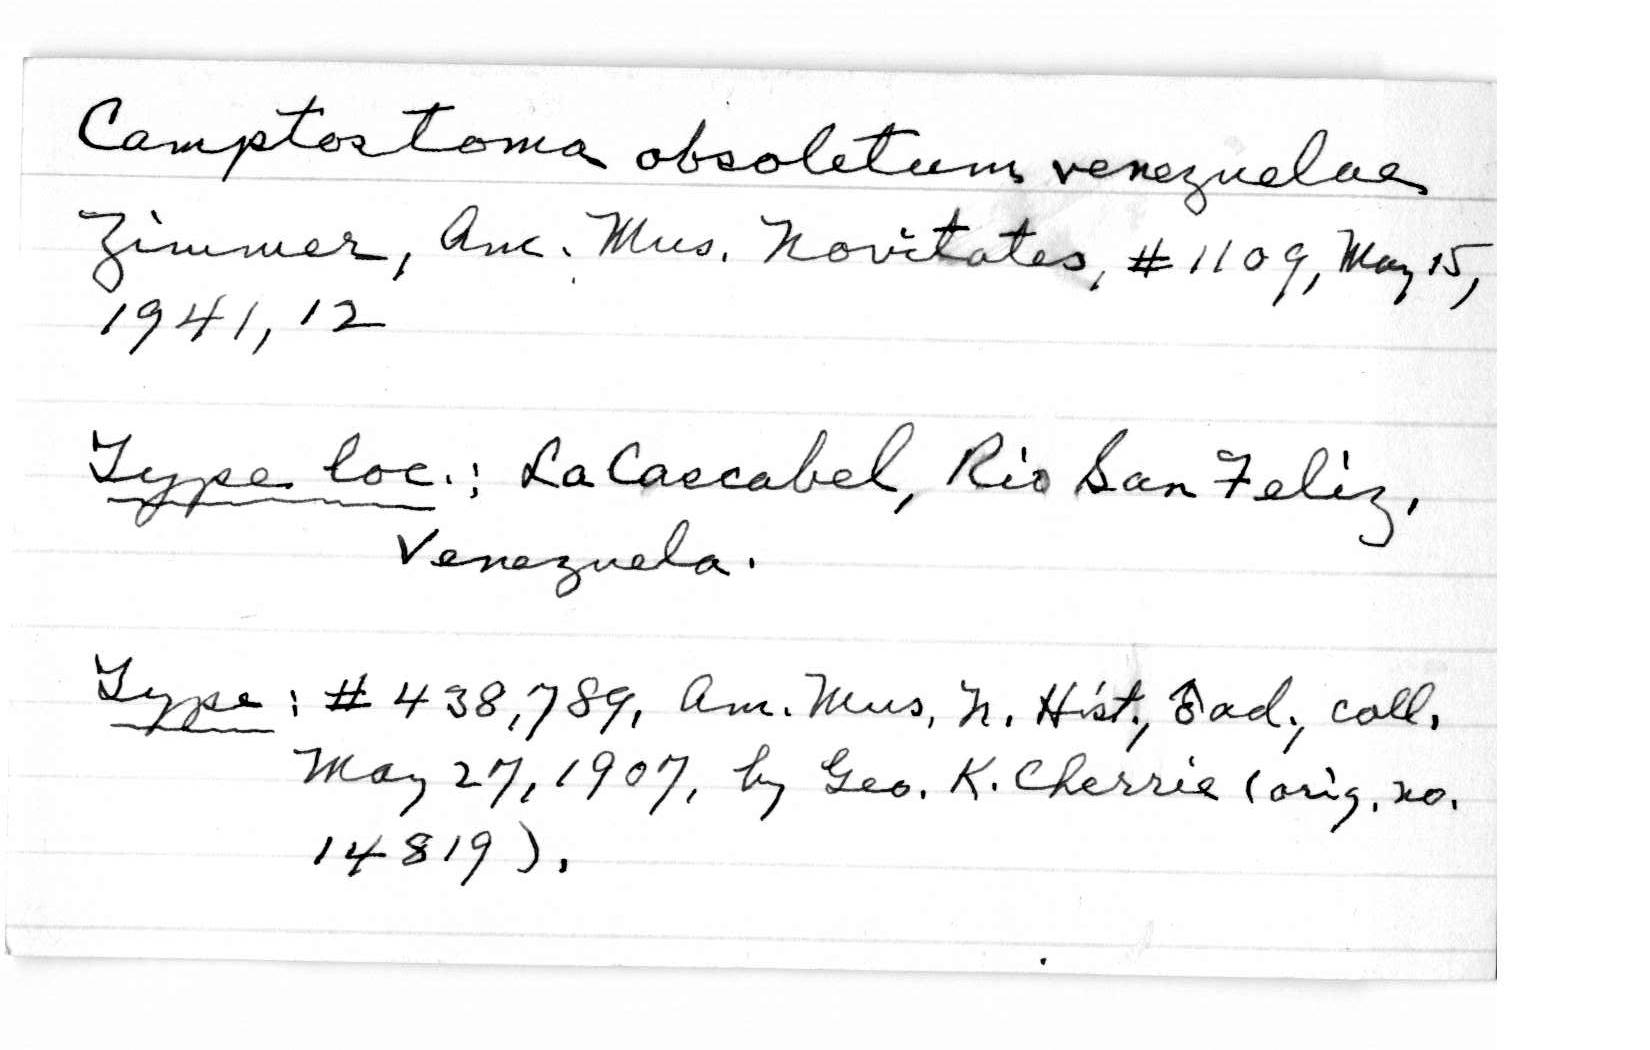 Camptostoma obsoletum venezuelae
Zimmer, Am. Mus. Novitates, #1109, May 15,
1941, 12
Type loc.: La Cascabel, Rio San Feliz,
Venezuela.
Type: #438,789, Am. Mus. N. Hist., ♂ ad., coll.
May 27, 1907, by Geo. K. Cherrie (orig. no.
14819).